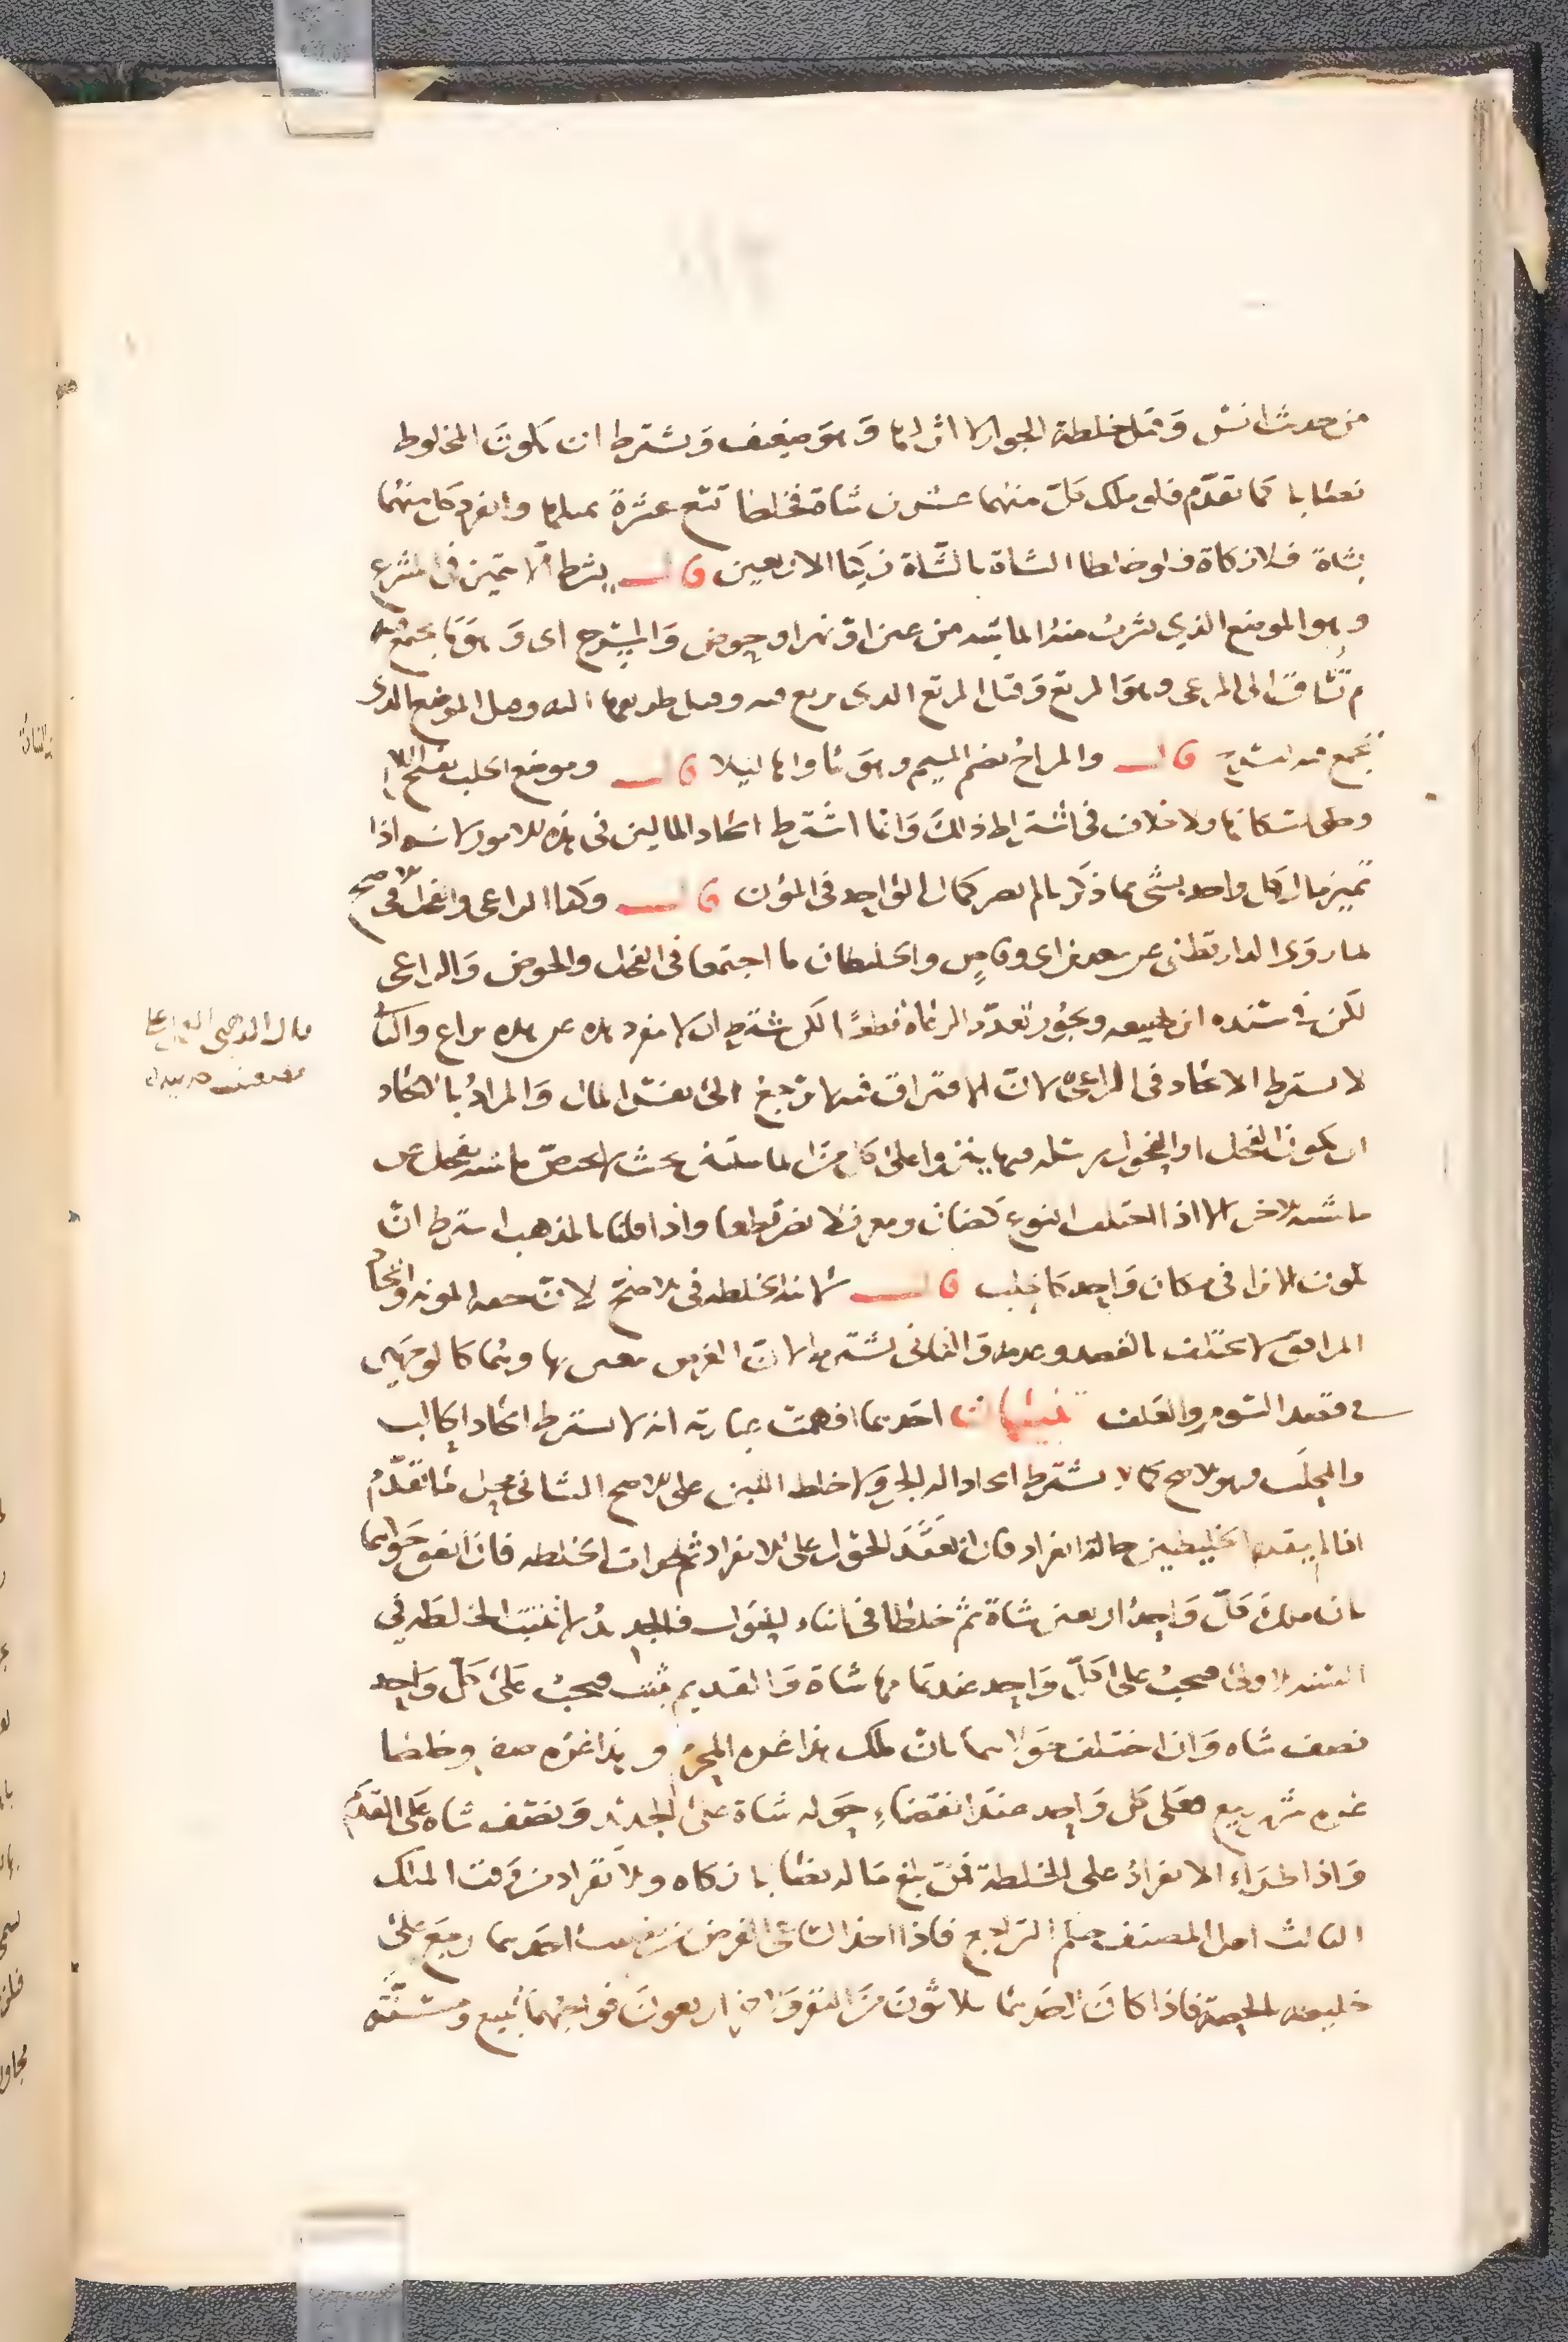 من حديث انس وقيل خلطة الجوار لا اثر لها وهو ضعيف ويشترط ان يكون المخلوط
نصابا كما تقدم فلو ملك كل منهما عشرين شاة فخلطا تسع عشرة بمثلها وانفرد كل منهما
بشاة فلا زكاة فلو خلطا الشاة بالشاة زكيا الاربعين قال بشرط ألا تتميز في المشرع
وهو الموضع الذي تشرب منه الماشية من عين او نهر او حوض والمسرح اى وهو ما يجتمع فيه
ثم تساق الى المرعى وهو المرتع وقيل المرتع الذى ترتع فيه وقيل طريقها اليه وقيل الموضع الذى
تجتمع فيه لتستريح قال والمراح بضم الميم وهو مأواها ليلا قال وموضع الحلب بفتح اللام
وحكي اسكانها ولا خلاف في اشتراط ذلك وانما اشترط اتحاد المالين في هذه الامور لانه اذا
تميز مال كل واحد بشى مما ذكر لم يصر كمال الواحد في المؤن قال وكذا الراعى والفحل في الاصح
لما روى الدارقطنى عن سعد بن ابى وقاص والخليطان ما اجتمعا في الفحل والحوض والراعى
لكن في سنده ابن لهيعه ويجوز تعدد الرعاة قطعا لكن يشترط ان لا تنفرد هذه عن هذه براع والثاني
لا يشترط الاتحاد في الراعى لان الافتراق فيه لا يرجع الى نفس المال والمراد بالاتحاد
ان يكون الفحل او الفحول مرسله فيها ينزوا على كل من الماشية بحيث لا تختص ماشية بفحل عن
ماشية الاخر الا اذا اختلف النوع كضان ومعز فلا يضر قطعا واذا قلنا بالمذهب اشترط ان
يكون الانزا في مكان واحد كالحلب قال لا نية الخلطه في الاصح لان خفة المونه واتحاد
المرافق لا يختلف بالقصد وعدمه والثانى يشترط لان الفرض يتغير بها وهما كالوجهين
في قصد السوم والعلف تنبيهات احدهما افهمت عبارته انه لا يشترط اتحاد الحالب
والمحلب وهو الاصح كما لا يشترط اتحاد اله الجز ولا خلط اللبن على الاصح الثانى محل ما تقدم
اذا لم يتقدم للخليطين حالة انفراد فان انعقد الحول على الانفراد ثم طرات الخلطه فان اتفق حولهما
بان ملك كل واحد اربعين شاة ثم خلطا في اثناء الحول فالجديد لا تثبت الخلطه في
السنة الاولى فيجب على كل واحد عند تمامها شاة والقديم تثبت فيجب على كل واحد
نصف شاه وان اختلف حولاهما بان ملك هذا غره المحرم وهذا غره صفر وخلطا
غره شهر ربيع فعلى كل واحد عند انقضاء حوله شاة على الجديد ونصف شاه على القديم
واذا طراء الانفراد على الخلطة فمن بلغ ماله نصابا زكاه والانفراد من وقت الملك
الثالث اهمل المصنف حكم التراجع فاذا اخذ الساعى الفرض من نصيب احدهما رجع على
خليطه بالحصة فاذا كان لاحدهما ثلاثون من البقر وللاخر اربعون فواجبهما تبيع ومسنه
قال الذهبى